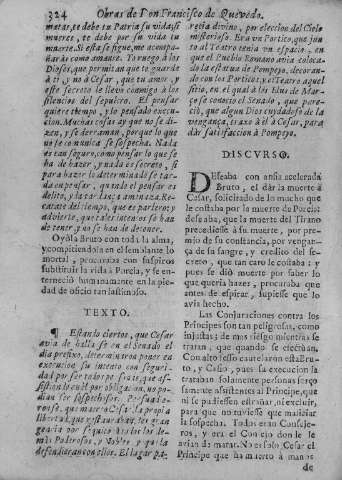 324 Obras de Don Francisco de Quevedo.
metar, te debe tu Patria su vida; si
mueres, te debe por su vida tu
muerte. Si esta se sigue, me acompa-
ñarás como amante. Yo ruego à los
Dioses, que permitan que te guarde
à ti, y no à Cesar, que tu amor, y
este secreto le llevo conmigo à los
silencios del sepulcro. El pensar
quiere tiempo, y lo pensado execu-
cion. Muchas cosas ay que no se di-
zen, y se derraman, porque lo que
no se comunica se sospecha. Nada
es tan seguro, como pensar lo que se
ha de hazer, y nada es secreto, si
para hazer lo determinado se tar-
da en pensar, quando el pensar es
delito, y la tardança amenaza. Re-
catate del tiempo, que es parlero; y
advierte, que tales intentos se han
de tener, y no se han de detener.
Oyóla Bruto con toda la alma,
y compitiendola en el semblante lo
mortal, procuraba con suspiros
substituir la vida à Porcia, y se en-
terneciò humanamente en la pie-
dad de oficio tan lastimoso.
TEXTO.
¶ Estando ciertos, que Cesar
avia de hallarse en el Senado el
dia prefixo, determinaron poner en
execucion su intento con seguri-
dad por ser torpe
sistion lo qual por obligacion, no po-
dian ser sospechosos.
rosos, que muerto Cesar, la propia
libertad, que
gearia por sequito todos los de-
mas Poderosos, y Nobles, y que la
defendieran con ellos. El lugar pa-
recia divino, por eleccion del Cielo
misterioso. Era un Portico, que jun-
to al Teatro tenia un espacio, en
que el Pueblo Romano avia coloca-
do la estatua de Pompeyo, decoran-
do con los Porticos, y el Teatro aquel
sitio, en el qual à los Idus de Mar-
ço se congregò el Senado, que pare-
ciò, que algun Dios cuydadoso de la
vengança, traxo à èl à Cesar, para
dàr satisfaccion à Pompeyo.
DISCURSO.
DEseaba con ansia acelerada
Bruto, el dàr la muerte à
Cesar, solicitado de lo mucho que
le costaba por la muerte de Porcia:
deseaba, que la muerte del Tirano
precediesse à su muerte, por pre-
mio de su constancia, por vengan-
ça de su sangre, y credito del se-
creto, que tan caro le costaba: y
pues se diò muerte por saber lo
que queria hazer, procuraba que
antes de espirar, supiesse que lo
avia hecho.
Las Conjuraciones contra los
Principes son tan peligrosas, como
injustas; de mas riesgo mientras se
tratan, que quando se executan.
Con alto sesso cautelaron esta Bru-
to, y Casio, pues su execucion la
trataban solamente personas forço-
samente asistentes al Principe, que
ni se pudiessen estrañar, ni escusar,
para que no tuviesse que maliciar
la sospecha. Todos eran Conseje-
ros, y era el Consejo donde le
avian de matar. No es solo Cesar el
Principe que ha muerto à manos
de